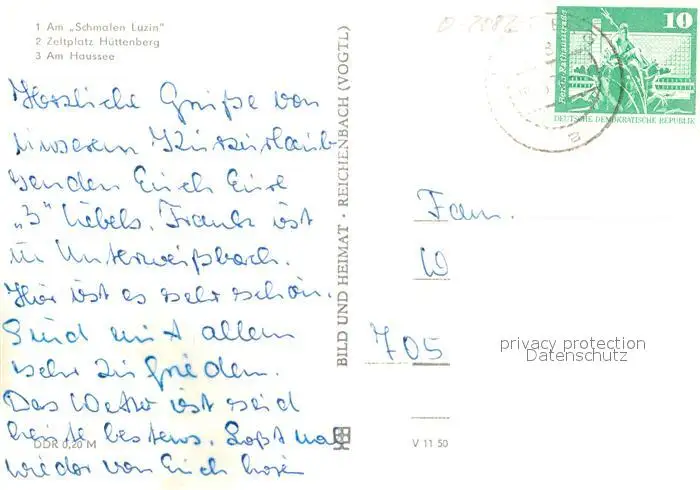 1 Am „Schmalen Luzin“
2 Zeltplatz Hüttenberg
3 Am Haussee
Herzliche Grüße von
unserem Kurzurlaub
senden Euch Eure
„3“ Liebels. Frank ist
in Unterweißbach.
Hier ist es sehr schön.
Sind mit allem
sehr zufrieden.
Das Wetter ist seid
heute bestens. Laßt mal
wieder von Euch hören
DDR 0,20 M
BILD UND HEIMAT · REICHENBACH (VOGTL)
V 11 50
10
Berlin, Rathausstraße
DEUTSCHE DEMOKRATISCHE REPUBLIK
Fam.
W
705
privacy protection
Datenschutz